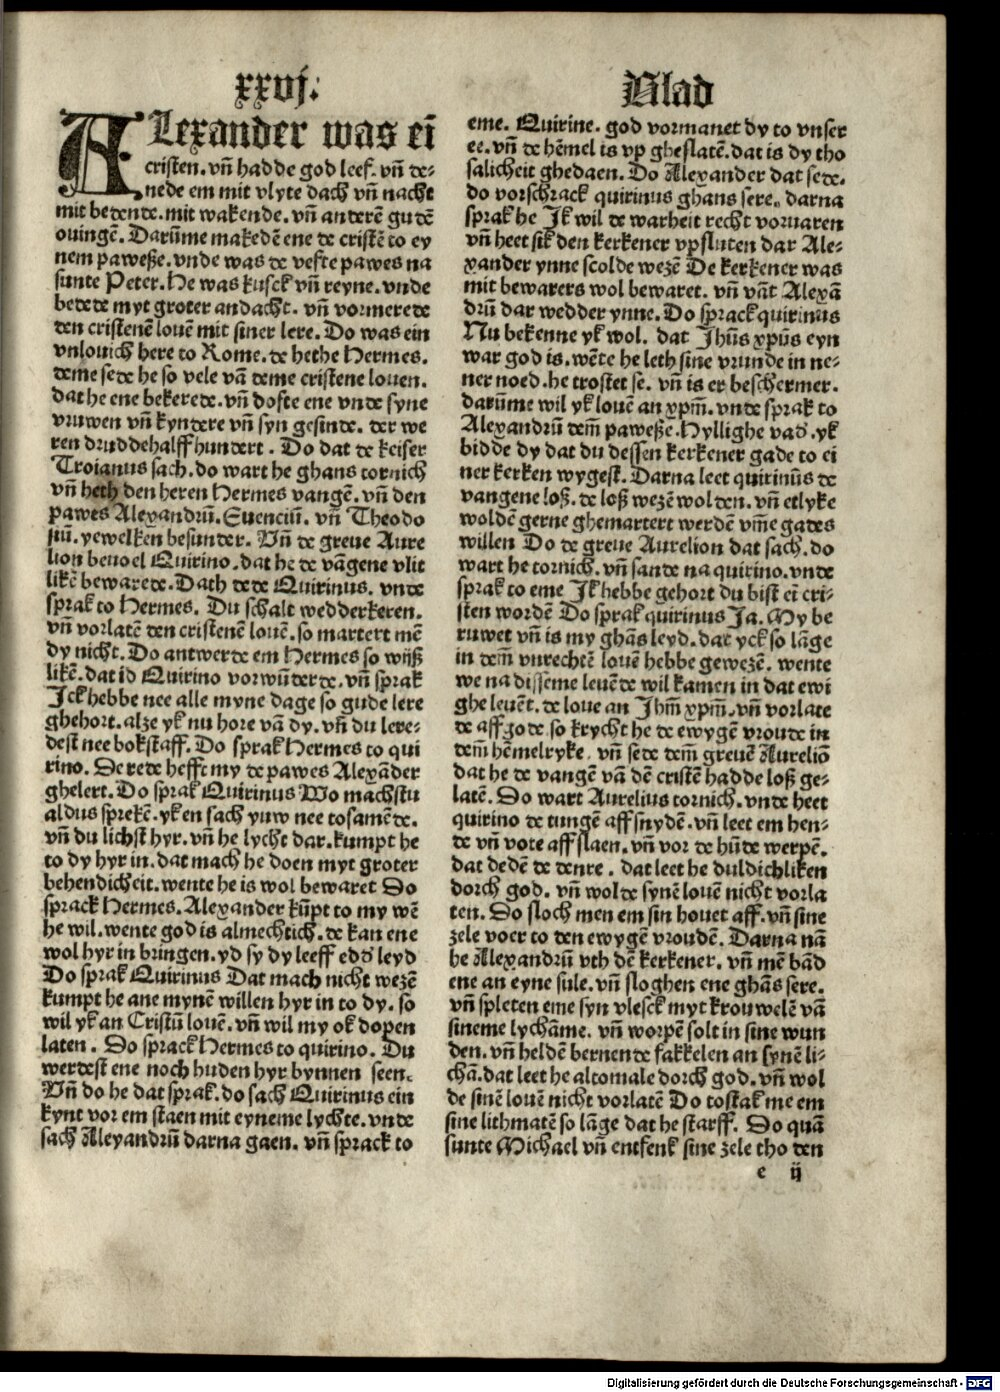 xxvj. Blad
ALexander was eī
cristen. vn̄ hadde god leef. vn̄ de-
nede em mit vlyte dach vn̄ nacht
mit bedende. mit wakende. vn̄ anderē gudē
ouingē. Darūme makedē ene de cristē to ey
nem paweße. vnde was de veste pawes na
sunte Peter. He was kusck vn̄ reyne. vnde
bedede myt groter andacht. vn̄ vormerede
den cristenē louē mit siner lere. Do was ein
vnlouich here to Rome. de hethe Hermes.
deme sede he so vele vā deme cristene louen.
dat he ene bekerede. vn̄ dofte ene vnde syne
vruwen vn̄ kyndere vn̄ syn gesinde. der we
ren druddehalffhundert. Do dat de keiser
Troianus sach. do wart he ghans tornich
vn̄ heth den heren Hermes vangē. vn̄ den
pawes Alexandrū. Euenciū. vn̄ Theodo
siū. yewelken besunder. Vn̄ de greue Aure
lion beuoel Quirino. dat he de vāgene vlit
likē bewarede. Dath dede Quirinus. vnde
sprak to Hermes. Du schalt wedderkeren.
vn̄ vorlatē den cristenē louē. so martert mē
dy nicht. Do antwerde em Hermes so wyß
likē. dat id Quirino vorwūderde. vn̄ sprak
Ick hebbe nee alle myne dage so gude lere
ghehort. alze yk nu hore vā dy. vn̄ du lere-
dest nee bokstaff. Do sprak Hermes to qui
rino. De rede hefft my de pawes Alexāder
ghelert. Do sprak Quirinus Wo machstu
aldus sprekē. yk en sach yuw nee tosamēde.
vn̄ du lichst hyr. vn̄ he lycht dar. kumpt he
to dy hyr in. dat mach he doen myt groter
behendicheit. wente he is wol bewaret Do
sprack Hermes. Alexander kūpt to my wē
he wil. wente god is almechtich. de kan ene
wol hyr in bringen. yd sy dy leeff edd̄ leyd
Do sprak Quirinus Dat mach nicht wezē
kumpt he ane mynē willen hyr in to dy. so
wil yk an Cristū louē. vn̄ wil my ok dopen
laten. Do sprack Hermes to quirino. Du
werdest ene noch huden hyr bynnen seen.
Vn̄ do he dat sprak. do sach Quirinus ein
kynt vor em staen mit eyneme lychte. vnde
sach Alexandrū darna gaen. vn̄ sprack to
eme. Quirine. god vormanet dy to vnser
ee. vn̄ de hēmel is vp gheslatē. dat is dy tho
salicheit ghedaen. Do Alexander dat sede.
do vorschrack quirinus ghans sere. darna
sprak he Ik wil de warheit recht voruaren
vn̄ heet sik den kerkener vpsluten dar Ale-
xander ynne scolde wezē De kerkener was
mit bewarers wol bewaret. vn̄ vāt Alexā
drū dar wedder ynne. Do sprack quirinus
Nu bekenne yk wol. dat Jhūs xpūs eyn
war god is. wēte he leth sine vrunde in ne-
ner noed. he trostet se. vn̄ is er beschermer.
darūme wil yk louē an xpm̄. vnde sprak to
Alexandrū dem̄ paweße. Hyllighe vad̄. yk
bidde dy dat du dessen kerkener gade to ei
ner kerken wygest. Darna leet quirinūs de
vangene loß. de loß wezē wolden. vn̄ etlyke
woldē gerne ghemartert werdē vm̄e gades
willen Do de greue Aurelion dat sach. do
wart he tornich. vn̄ sande na quirino. vnde
sprak to eme Ik hebbe gehort du bist eī cri-
sten wordē Do sprak quirinus Ja. My be
ruwet vn̄ is my ghās leyd. dat yck so lāge
in dem̄ vnrechtē louē hebbe gewezē. wente
we na disseme leuēde wil kamen in dat ewi
ghe leuēt. de loue an Jhm̄ xpm̄. vn̄ vorlate
de affgode. so krycht he de ewygē vroude in
dem̄ hēmelryke. vn̄ sede dem̄ greuē Aureliō
dat he de vangē vā dē cristē hadde loß ge-
latē. Do wart Aurelius tornich. vnde heet
quirino de tungē aff snydē. vn̄ leet em hen-
de vn̄ vote aff slaen. vn̄ vor de hūde werpē.
dat dedē de denre. dat leet he duldichliken
dorch god. vn̄ wolde synē louē nicht vorla
ten. Do sloch men em sin houet aff. vn̄ sine
zele voer to den ewygē vroudē. Darna nā
he Alexandrū vth dē kerkener. vn̄ mē bād
ene an eyne sule. vn̄ sloghen ene ghās sere.
vn̄ spleten eme syn vlesck myt krouwelē vā
sineme lychāme. vn̄ worpē solt in sine wun
den. vn̄ heldē bernende fakkelen an synē li-
chā. dat leet he altomale dorch god. vn̄ wol
de sinē louē nicht vorlatē Do tostak me em
sine lithmatē so lāge dat he starff. Do quā
sunte Michael vn̄ entfenk sine zele tho den
e ij
Digitalisierung gefördert durch die Deutsche Forschungsgemeinschaft - DFG